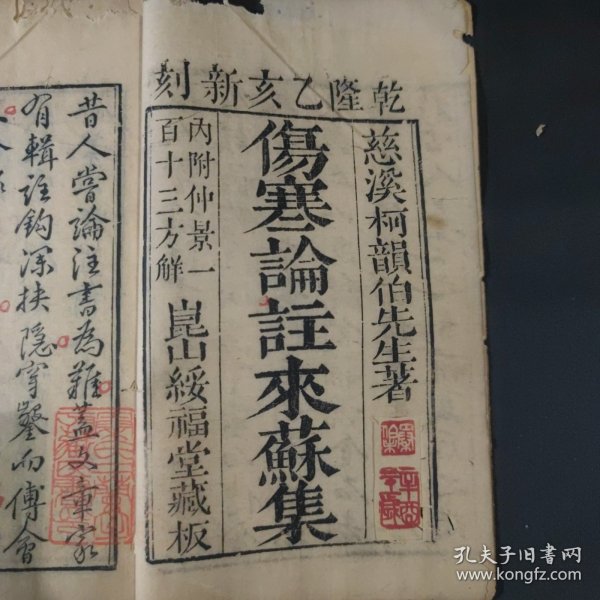 乾隆乙亥新刻
慈溪柯韻伯先生著
傷寒論註來蘇集
內附仲景一
百十三方解
崑山綏福堂藏板
昔人嘗論注書為難蓋文章家
有輯註鈎深抉隱穿鑿而傅會
孔夫子旧书网
www.kongfz.com